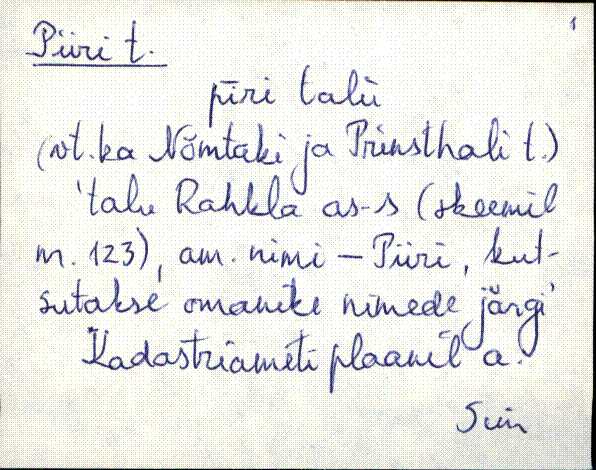 1
Piiri t.
pīri talù
(vt. ka Nõmtaki ja Prinsthali t.)
'talu Rahkla as-s (skeemil
nr. 123), am. nimi – Piiri, kut-
sutakse omanike nimede järgi'
Kadastriameti plaanil a.